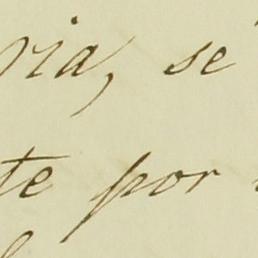 ria, se
te por